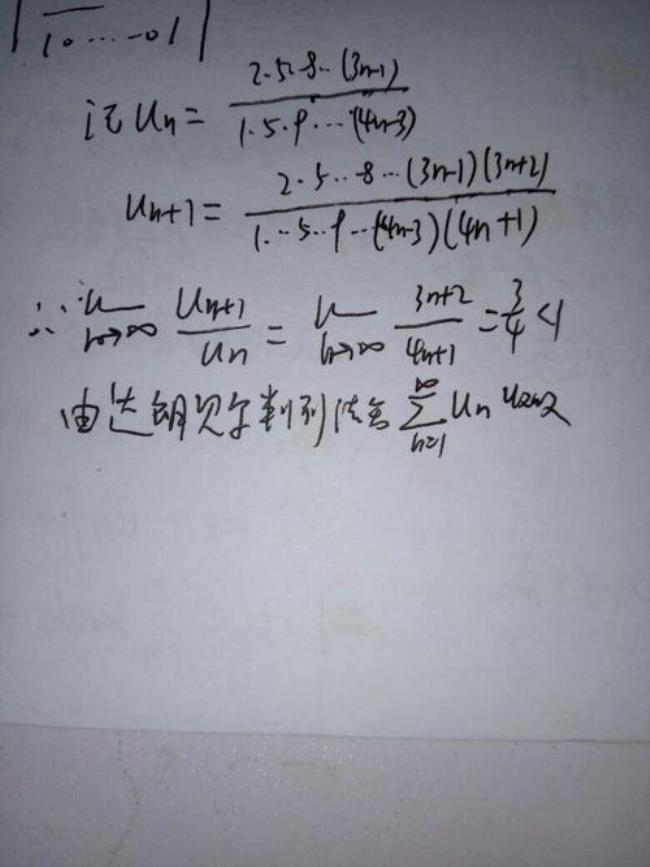 10……01
记 Un = 2·5·8··(3n-1) / 1·5·9···(4n-3)
Un+1 = 2·5··8···(3n-1)(3n+2) / 1···5··9··(4n-3)(4n+1)
∴ lim n→∞ Un+1 / Un = lim n→∞ 3n+2 / 4n+1 = 3/4 <1
由达朗贝尔判别法 ∑ n=1 ∞ Un